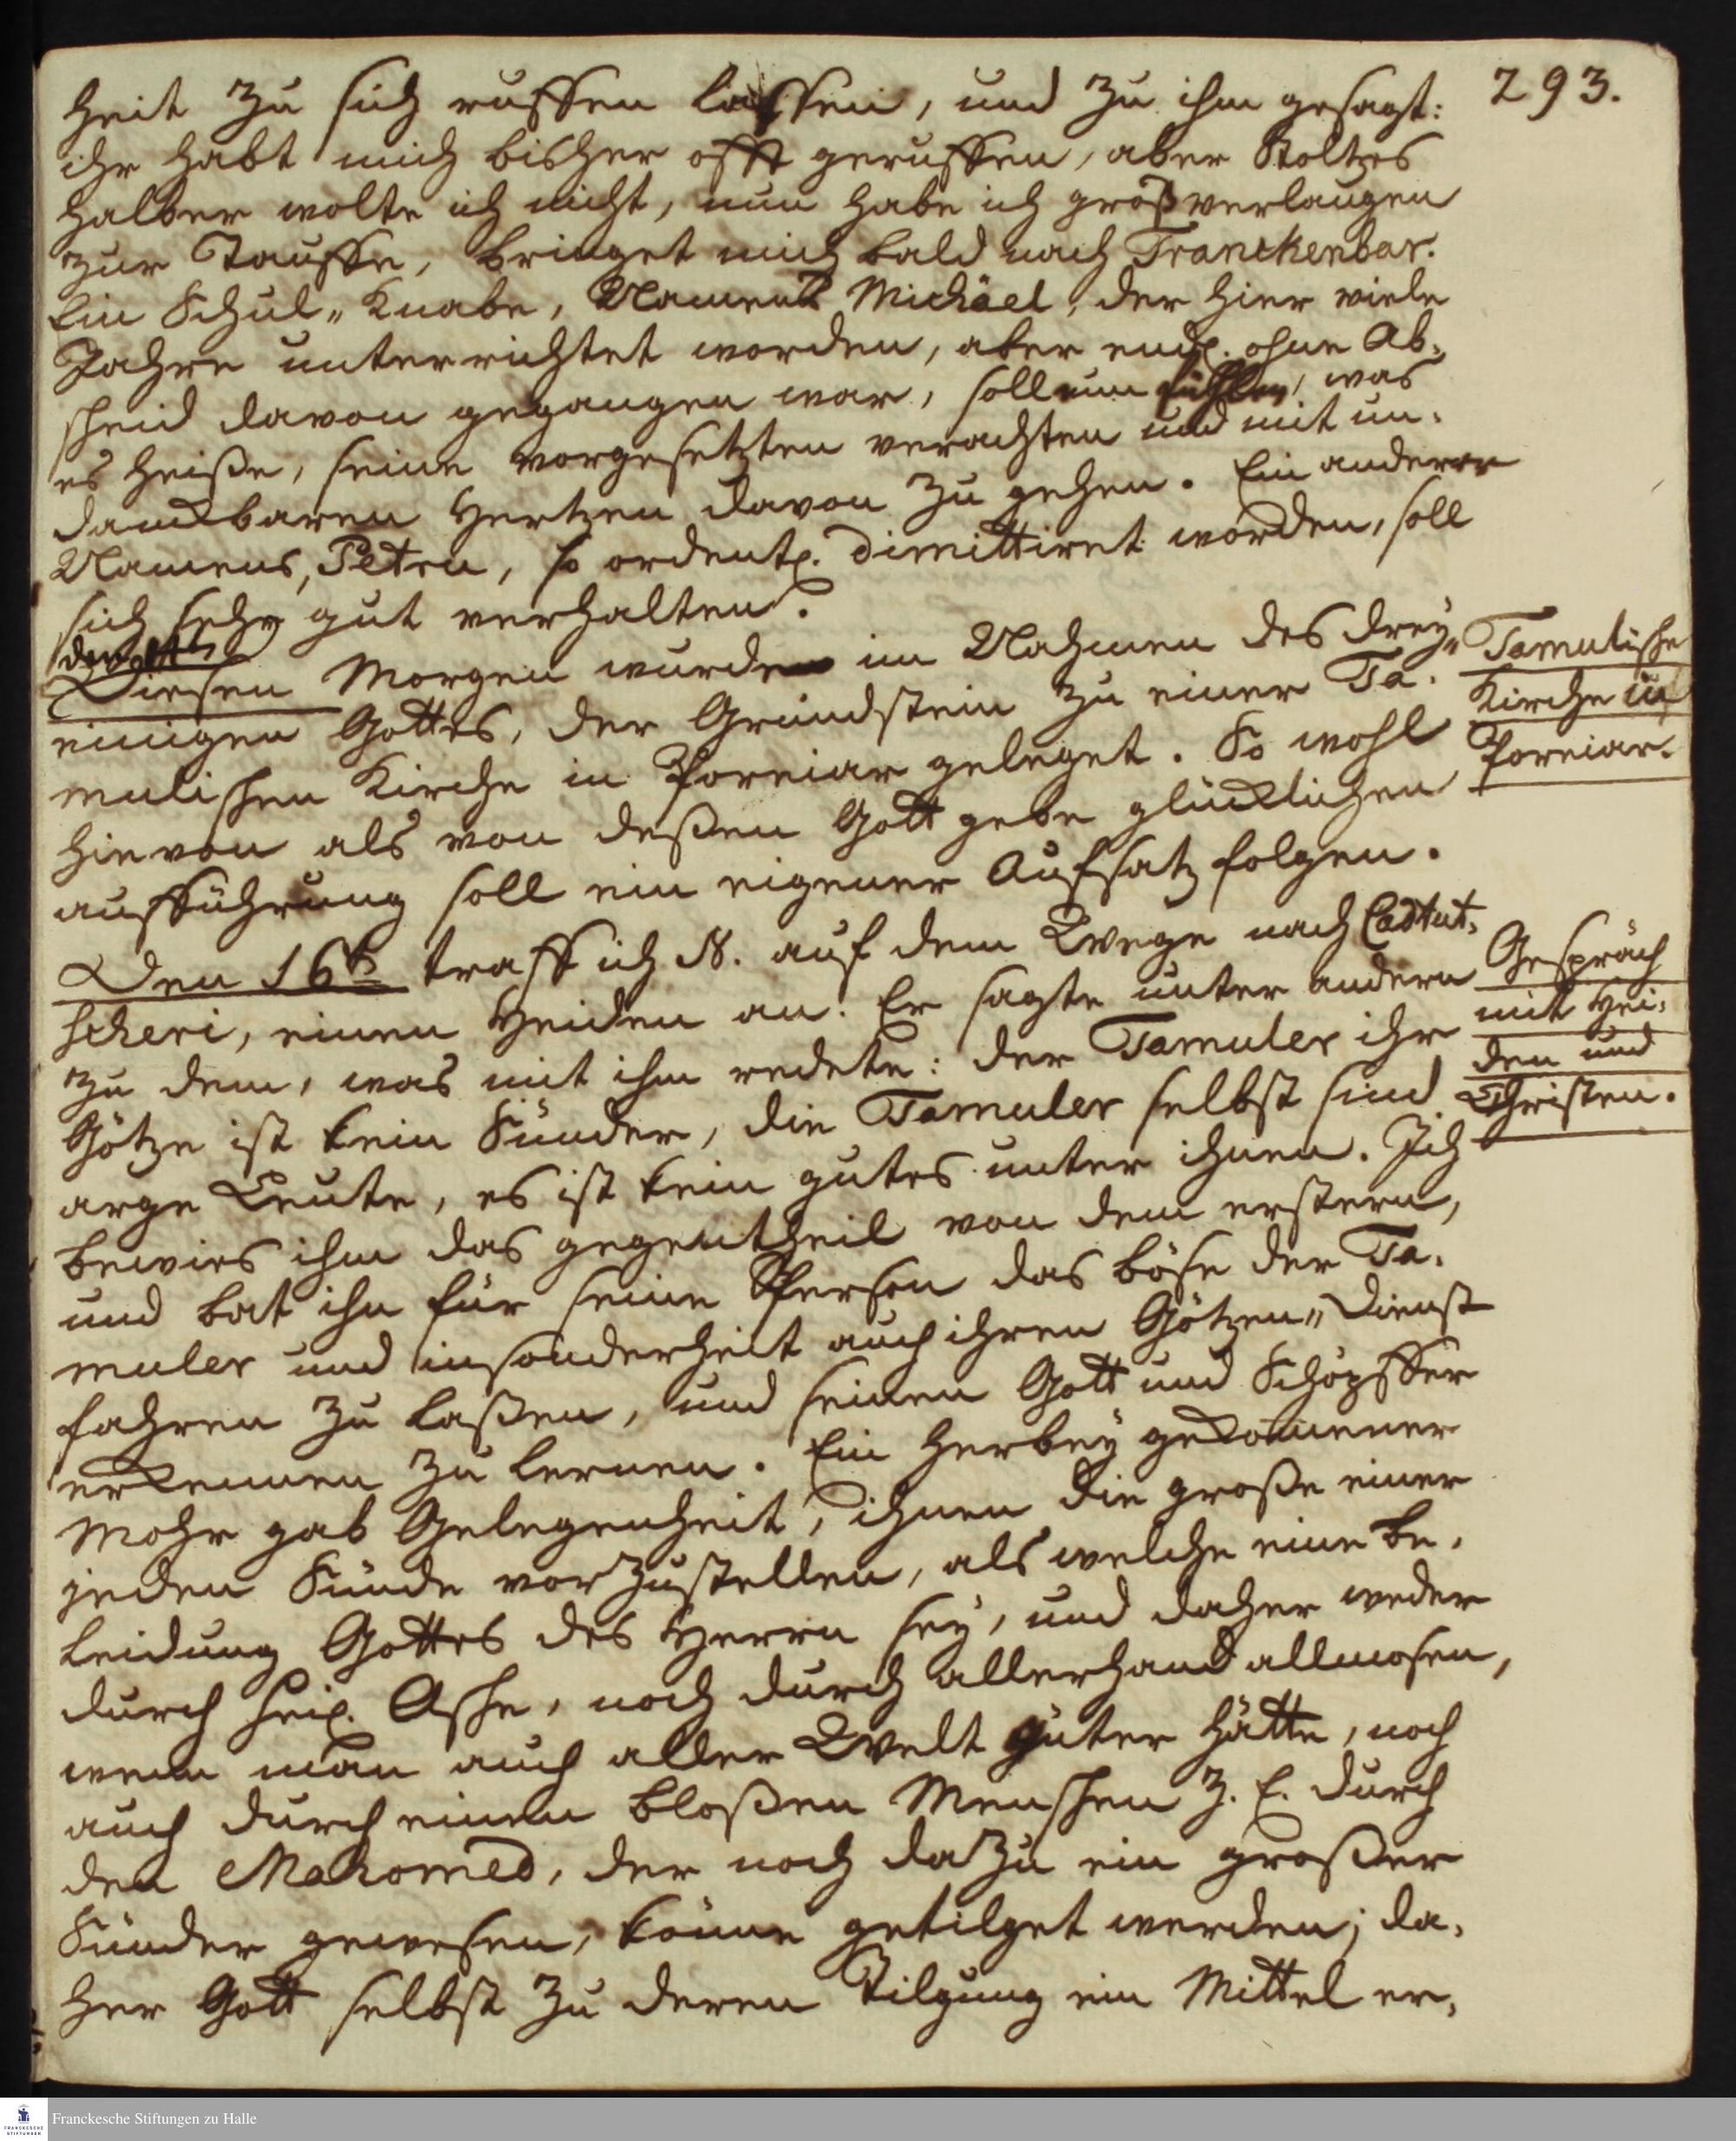 293.
heit zu sich ruffen laßen, und zu ihm gesagt:
ihr habt mich bisher offt geruffen, aber Stoltzes
halber wolte ich nicht, nun habe ich groß verlangen
zur Tauffe, bringet mich bald nach Tranckenbar.
Ein Schul-Knabe, Namens Michäel, der hier viele
Jahre unterrichtet worden, aber endl. ohne Ab-
scheid davon gegangen war, soll nun fühlen, was
es heiße, seine vorgesetzten verachten und mit un-
danckbaren Hertzen davon zu gehen. Ein anderer
Namens, Petru, so ordentl. dimittiret worden, soll
sich sehr gut verhalten.
Diesen Morgen wurde im Nahmen des drey-
einigen Gottes, der Grundstein zu einer Ta-
mulischen Kirche in Poreiar geleget. So wohl
hievon als von deßen Gott gebe glücklichen
ausführung soll ein eigener Aufsatz folgen.
Tamulische
Kirche in
Poreiar.
Den 16t traff ich N. auf dem Wege nach Cadtut-
scheri, einen Heiden an. Er sagte unter andern
zu dem, was mit ihm redete: der Tamuler ihr
Götze ist kein Sünder, die Tamuler selbst sind
arge Leute, es ist kein gutes unter ihnen. Ich
bewies ihm das gegentheil von dem erstern,
und bat ihn für seine Person das böse der Ta-
muler und insonderheit auch ihren Götzen-Dienst
fahren zu laßen, und seinen Gott und Schöpffer
erkennen zu lernen. Ein herbey gekommener
Mohr gab Gelegenheit, ihnen die große einer
jeden Sünde vorzustellen, als welche eine Be-
leidung Gottes des Herrn sey, und daher weder
durch heil. Asche, noch durch allerhand allmosen,
wenn man auch aller Welt güter hätte, noch
auch durch einen bloßen Menschen z. E. durch
den Mahomed, der noch dazu ein großer
Sünder gewesen, könne getilget werden; da-
her Gott selbst zu deren Tilgung ein Mittel er-
Gespräch
mit Hei-
den und
Christen.
Franckesche Stiftungen zu Halle